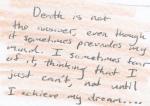 Death is not
the answer, even though
it sometimes pervades my
mind. I sometimes tear
of it, thinking that I
just can't, not until
I achieve my dream....